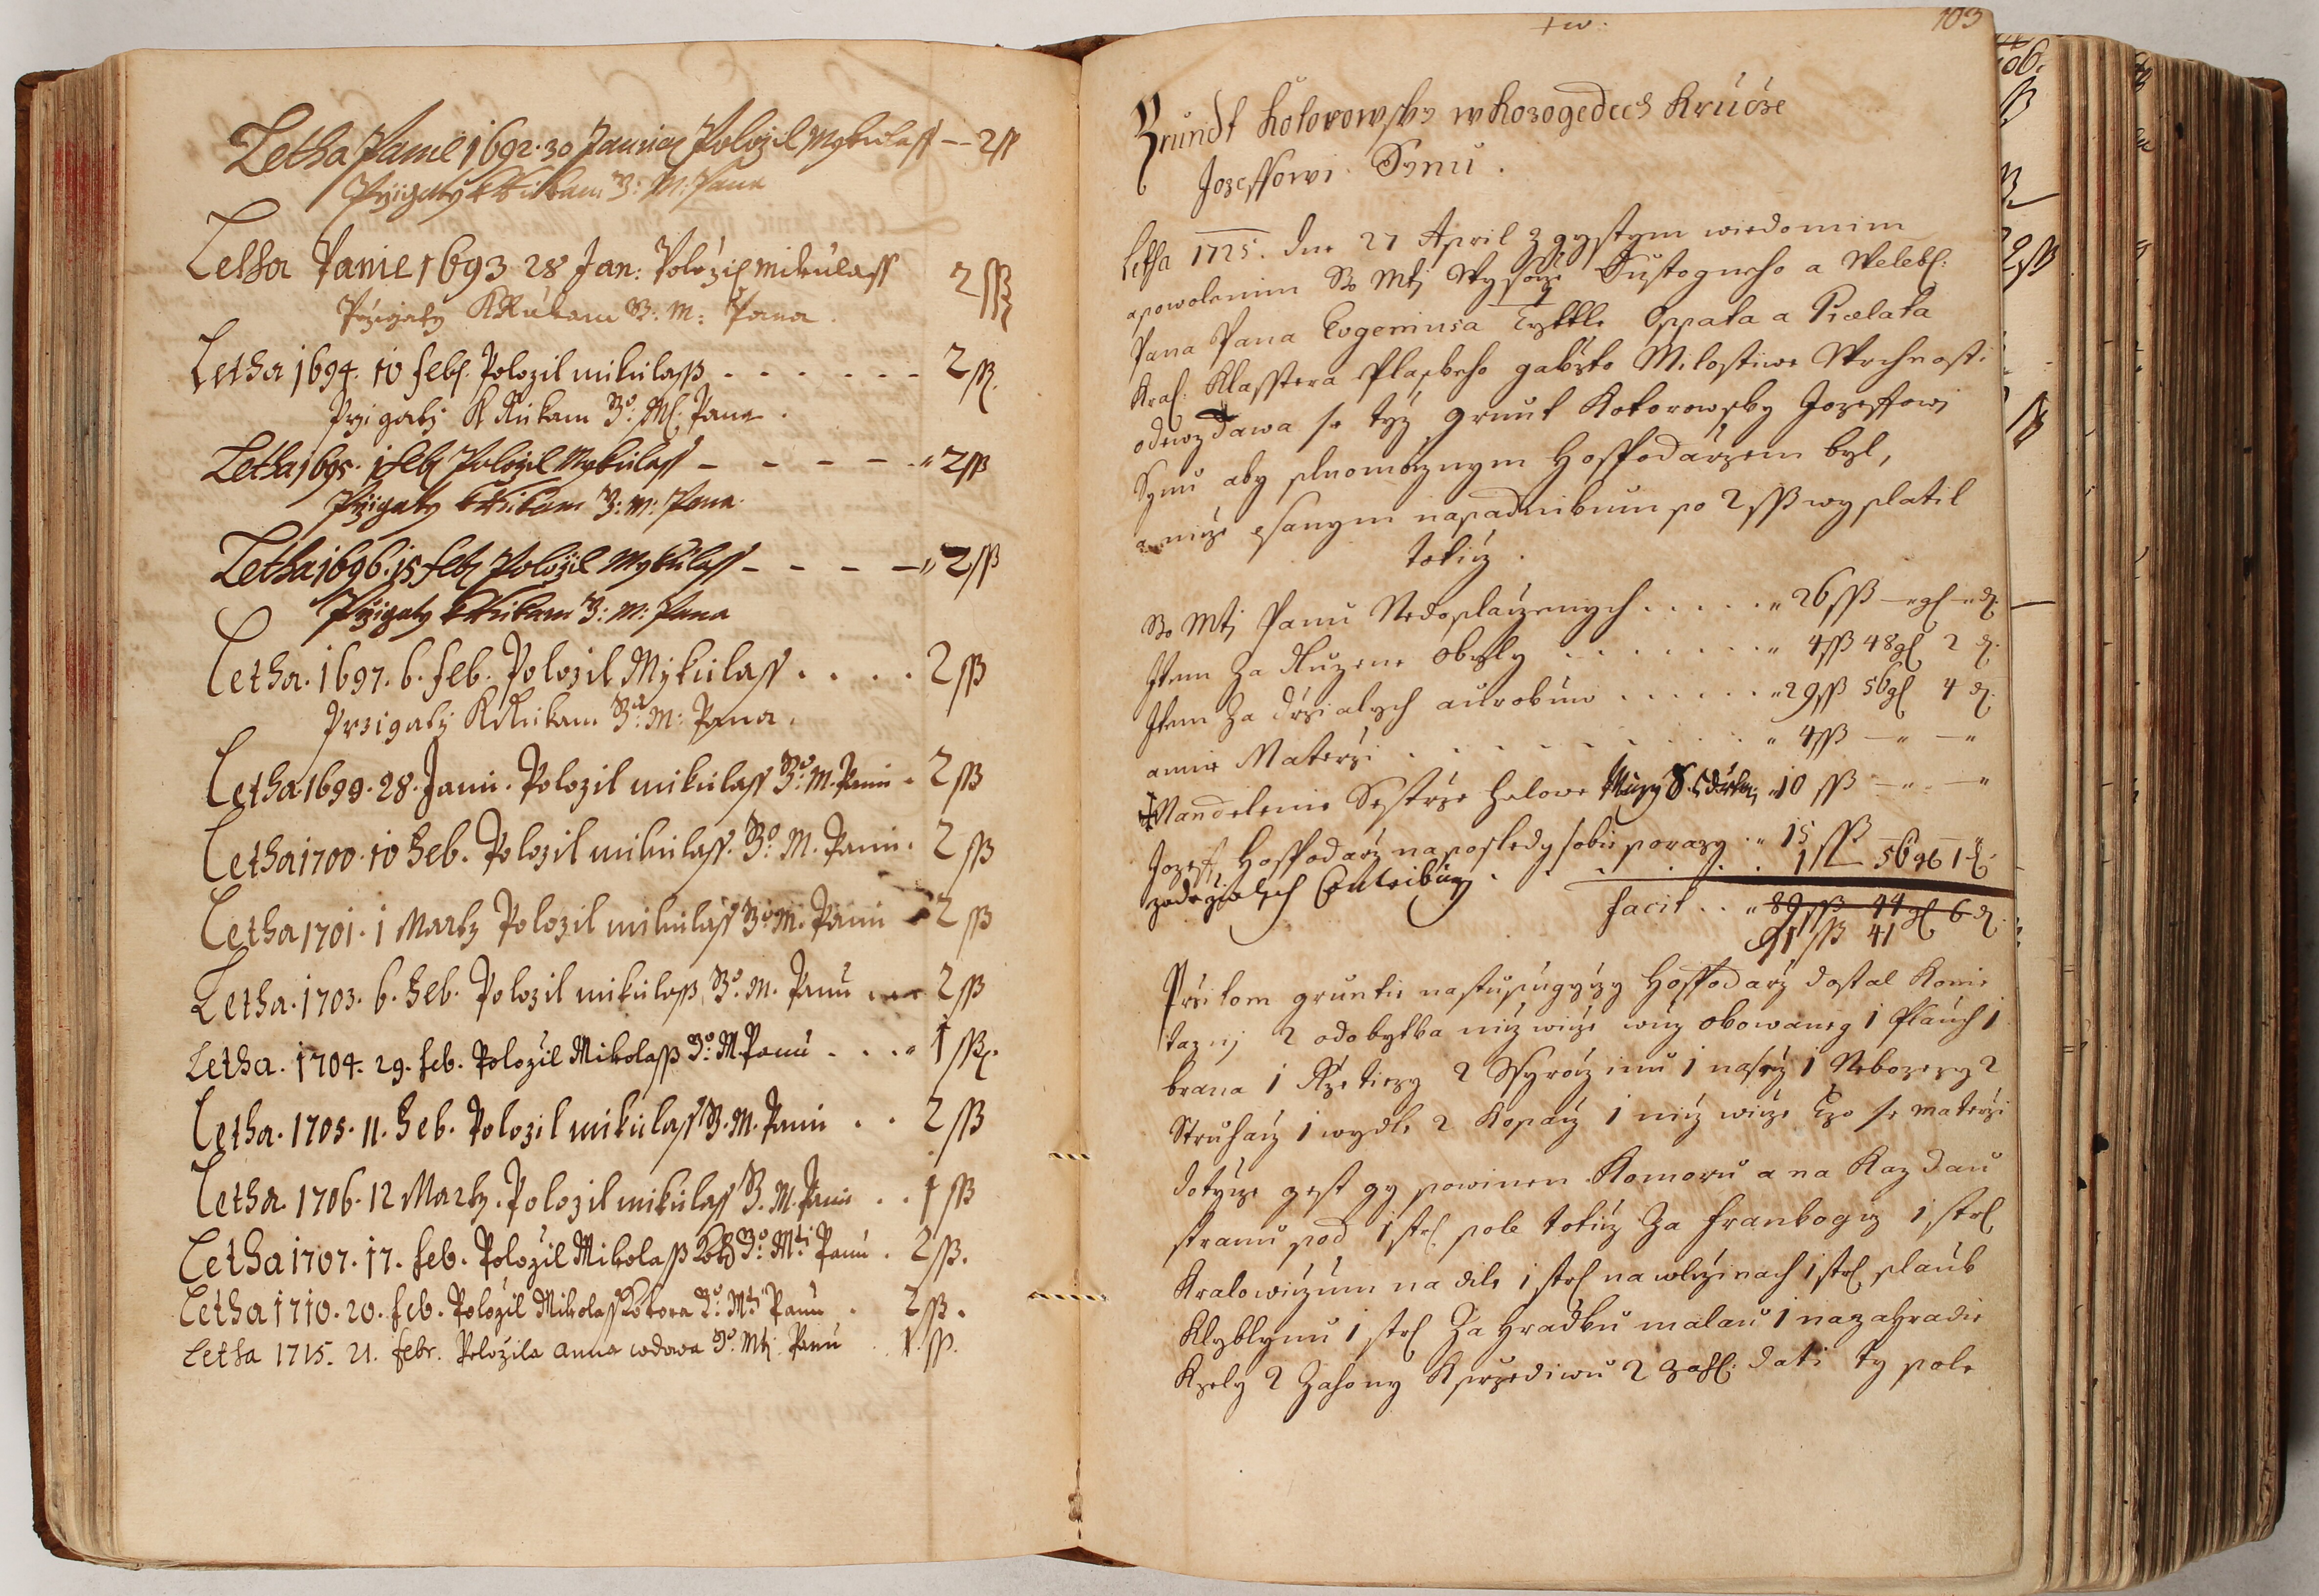 Letha Panie 1692. 30 Januarj Polozil Mykulass — 2 ss
Przigaty k Rukam J: M: Pana
Letha Panie 1693 28 Jan: Polozil mikulass 2 ssß
Przigaty K Rukam J: M: Pana.
Letha 1694. 10 feb. Polozil mikulaß . . . . . . . 2 ß.
Przigaty K Rukam Jo: M: Pana.
Letha 1695. 1 feb Polozil Mykulass – – – – – 2 ß
Przigaty k Rukam J: M: Pana.
Letha 1696. 15 feb Polozil Mykulass – – – – 2 sß
Przigaty k Rukam J: M: Pana
Letha. 1697. 6. feb. Polozil Mykulass . . . . 2 sß
Przigaty K Rukam Jo: M: Pana.
Letha 1699. 28. Janu. Polozil mikulass Jo: M. Panu . 2 sß
Letha 1700. 10 Feb. Polozil mikulass. Jo: M. Panu. 2 sß
Letha 1701. 1 Marty Polozil mikulass Jo M. Panu 2 sß
Letha. 1703. 6. Feb. Polozil mikulaß Jo. M. Panu 2 sß
Letha. 1704. 29. feb. Polozil Mikolaß Jo: M. Panu . . . 1 sß.
Letha. 1705. 11. Feb. Polozil mikulass J. M. Panu . . 2 sß
Letha. 1706. 12 Marty. Polozil mikulass J. M. Panu . . 1 sß
Letha 1707. 17. feb. Polozil Mikolaß Jo: Mti Panu . 2 ß.
Letha 1710. 20. feb. Polozil Mikolass Kokora Jo: Mti Panu . 2 ß.
Letha 1715. 21. febr. Polozila anna wdowa Jo. Mti Panu . 1 ß.
103
Grundt Kokorowsky w Kozogedech Kručze
Jozeffowi Synu.
Letha 1725. dne 27 April z gystym wiedomim
a powolenim Jo Mti Wysocze Dustogneho a Welebl:
Pana Pana Eugeniusa Tyttle Oppata a Prælata
Kral: Klasstera Plaskeho gakožto Milostiwe Wrchnosti
odewzdawa se tyž grunt Kokorowsky Jozeffowi
Synu aby plnomocznym Hospodarzem byl,
a nize psanym napadnikum po 2 sß wyplatil
totiz.
Jo Mti Panu Nedoplaczenych . . . . . 26 sß — gl — d.
Item Za dluzene obyly . . . . . . . 4 sß 48 gl 2 d.
Item Za drzialych aurokuw . . . . . . 29 sß 56 gl 4 d.
annie Materzi . . . . . . . . . . 4 sß — —
Mandelenie Sestrze 10 sß — —
Jozeff Hospodarz naposledy sobie porazy 15 sß — —
zadrzialych Contribucy . . . . . . . 1 — 56 gl 1 d.
facit . . 89 sß 44 gl 6 d.
91 sß 41
Przitom gruntie nastupugyczy Hospodarz dostal Konie
tazny 2 odobytka nicz wicze wuz okowaney 1 Pluch 1
brana 1 Rzetiezy 2 1 1 Nebozezy 2
Struhacz 1 wydle 2 Kopacz 1 nicz wicze Czo se materzi
dotycze gest gy powinen Komoru a na Kazdau
stranu pod 1 str pole totiz Za 1 str
Kralowiczum na dile 1 str 1 str
1 str Za Hradku malau 1 na zahradie
2 Zahony K przediwu 2 dati ty pole